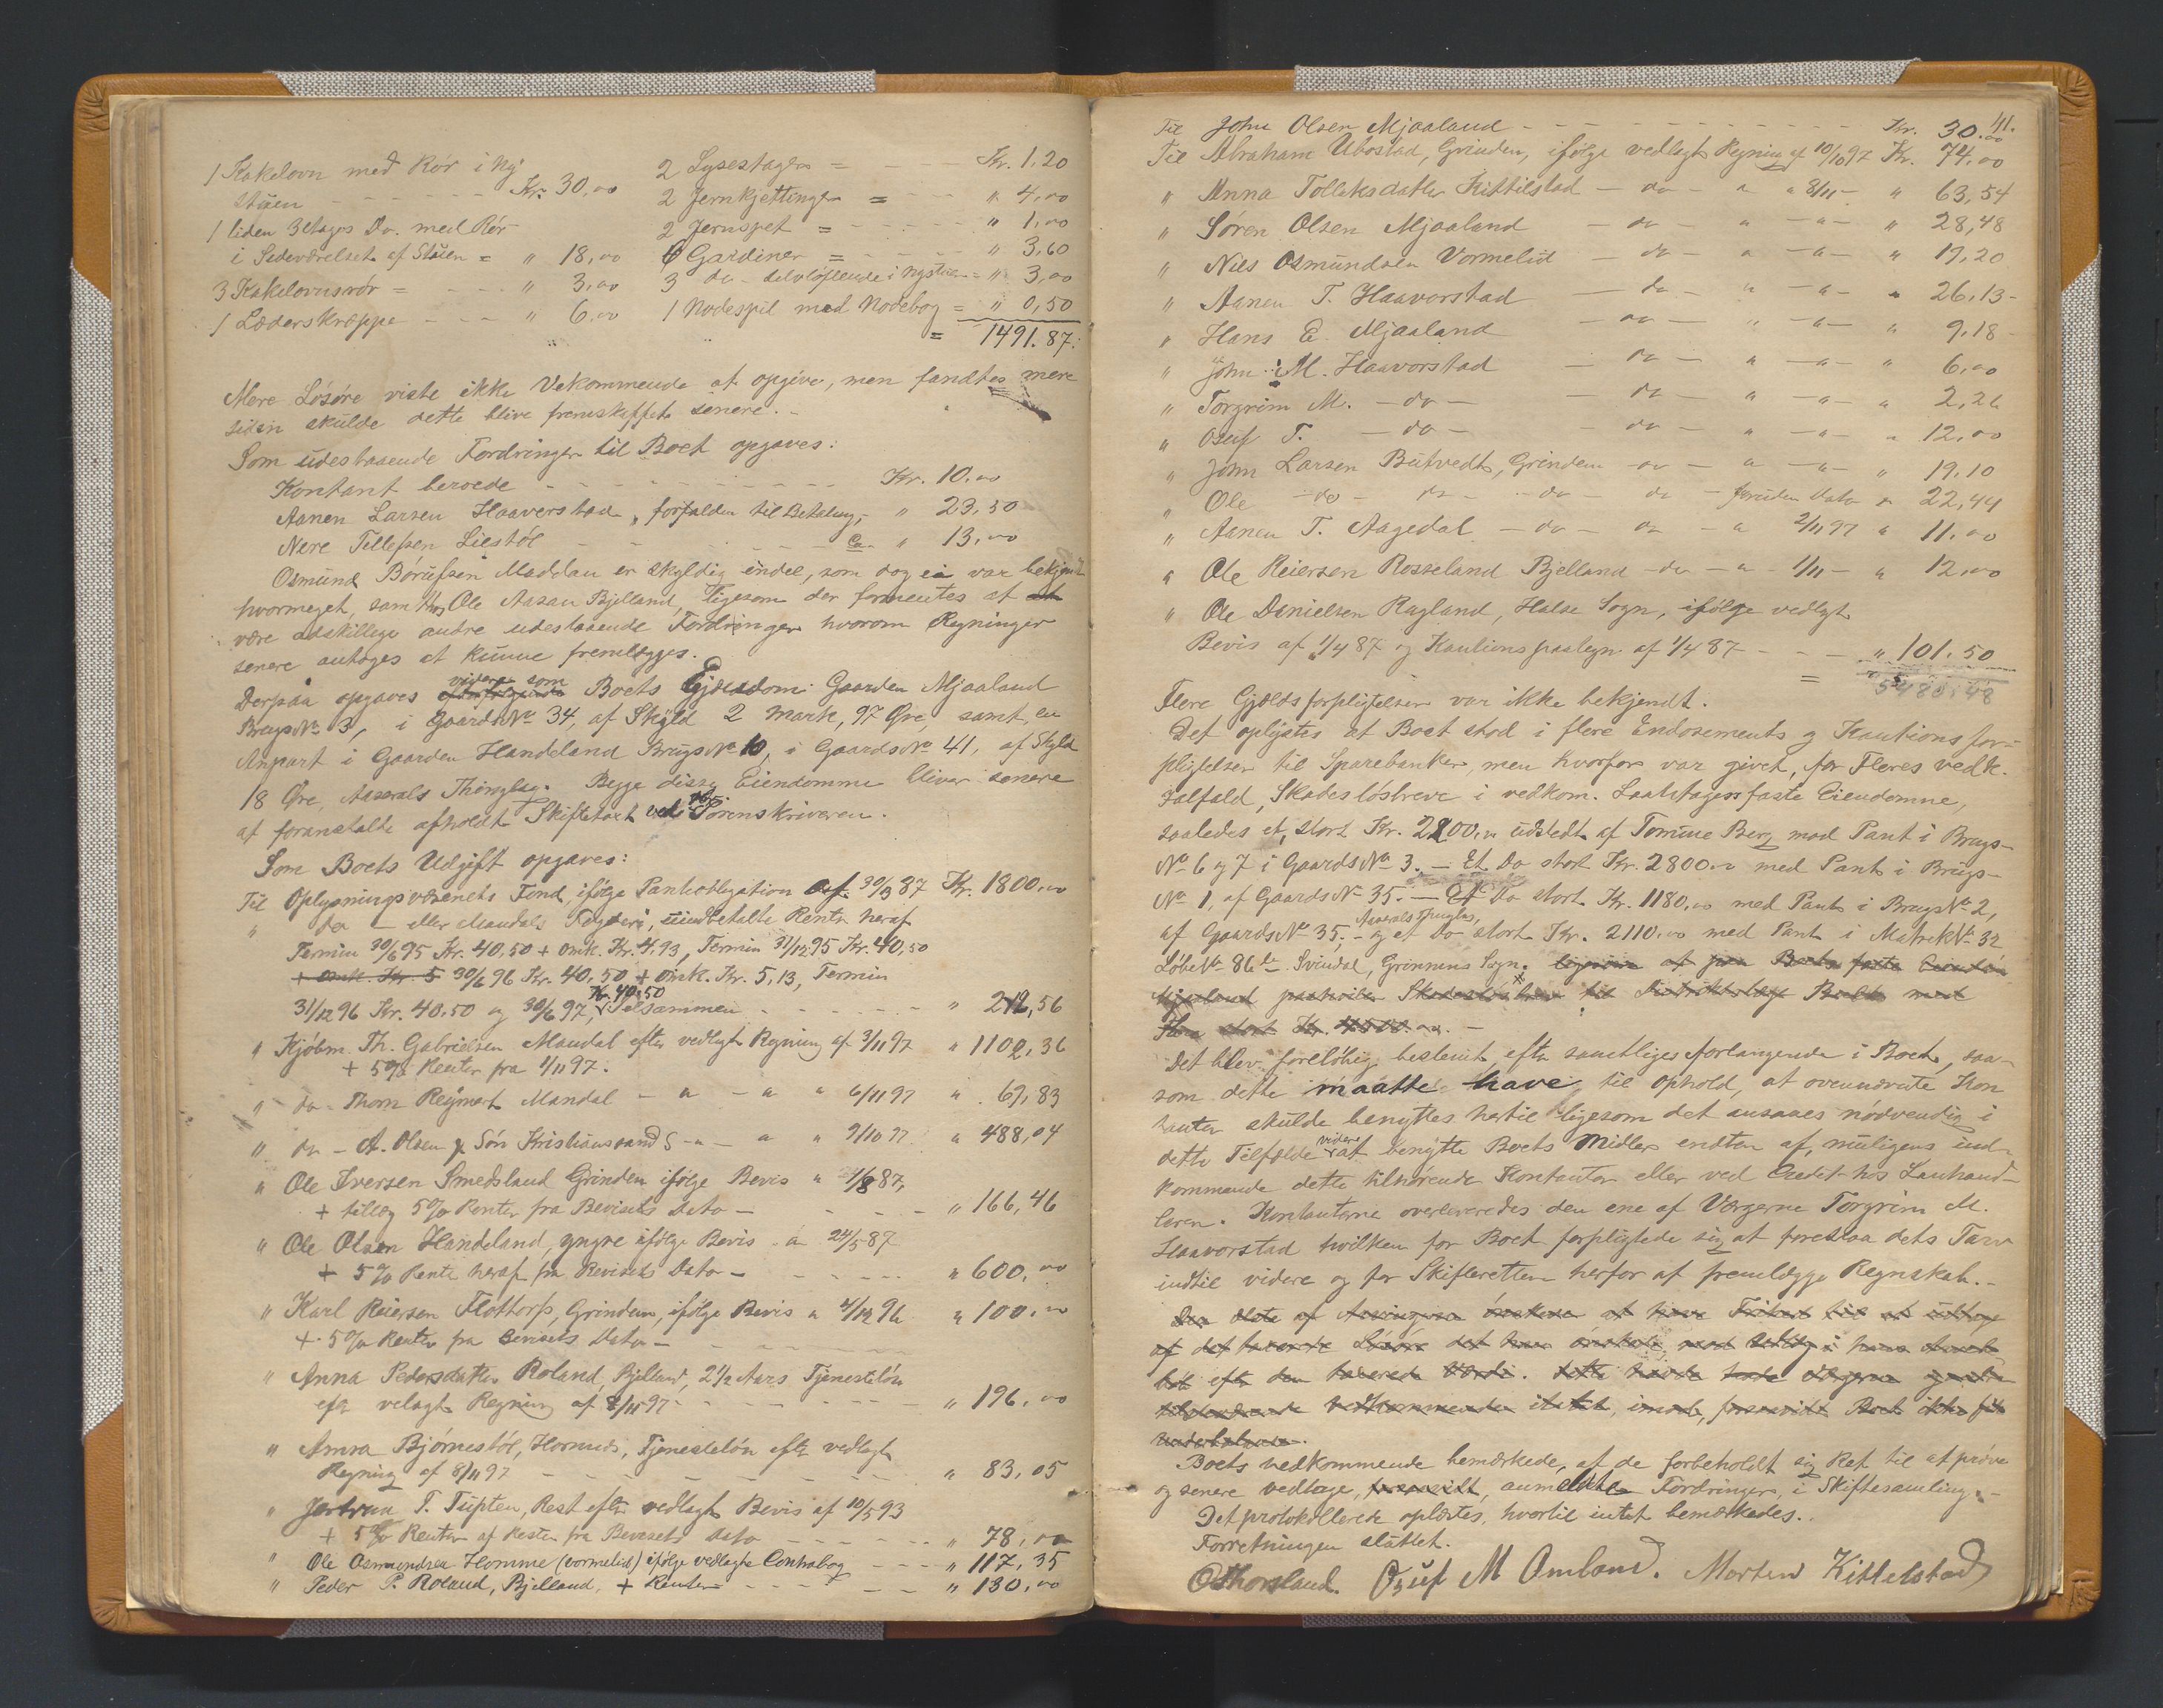 1 Kakelovn med Rör i Ny
stuen - - - - Kr. 30,00
1 liden 3 Etages Do. med Rör
i Sideværelset af Stuen = " 18,00
3 Kakelovnsrör = - - - " 3,00
1 Læderskræppe - - - " 6,00
2 Lysestager = - - - Kr. 1,20
2 Jernkjettinger = - - - " 4,00
2 Jernspet = - - - " 1,00
6 Gardiner = - - - " 3,60
3 do - i Nystuen = " 3,00
1 Nodespil med Nodebog = " 0,50
= 1491.87.
Mere Lösöre viste ikke Vekommende at opgive, men fandtes mere
siden skulde dette blive fremskaffet senere. -
Som udestaaende Fordringer til Boet opgaves:
Kontant beroede - - - - Kr. 10.00
Aanen Larsen Haaverstad, forfalden til Betaling, " 23,50
Nere Tellefsen Liestöl - - - - Ca. " 13,00
Osmund Börufsen Maddan er skyldig endel, som dog ei var bekjendt
hvormeget, samt Ole Aasan Bjelland, ligesom der formentes at
være adskillige andre udestaaende Fordringer hvorom Regninger
senere antages at kunne fremlægges.
Derpaa opgaves videre som Boets Ejendom: Gaarden Mjaaland
Brugs No 3, i Gaards No 34, af Skyld 2 Mark, 97 Øre, samt en
Anpart i Gaarden Handeland Brugs No 10, i Gaards No 41, af Skyld
18 Øre, Aaserals Thinglag. Begge disse Eiendomme bliver senere
at foranstalte afholdt Skiftetaxt ved Sorenskriveren.
Som Boets Udgift opgaves:
Til Oplysningsvæsenets Fond, ifölge Pantobligation af 30/9 87 Kr. 1800,00
" do - eller Mandals Fogderi, uindbetalte Renter heraf
Termin 30/6 95 Kr. 40,50 + Omk. Kr. 4,93, Termin 31/12 95 Kr. 40,50
+ Omk. Kr. 5 30/6 96 Kr. 40,50 + Omk. Kr. 5,13, Termin
31/12 96 Kr. 40,50 og 30/6 97, Kr. 40,50 Tilsammen - - - - " 212,56
" Kjöbm. Th. Gabrielsen Mandal efter vedlagt Regning af 3/11 97 " 1102,36
+ 5% Renter fra 1/11 97.
" do. Thorn Reymert Mandal - " - " " 6/11 97 " 69,83
" do - A. Olsen & Sön Kristianssand S - " - " " 9/10 97 " 488,04
" Ole Iversen Smedsland Grinden ifölge Bevis " 1/8 87,
+ tillæg 5% Renter fra Bevisets Dato - - - - " 166,46
" Ole Olsen Handeland, yngre ifölge Bevis " 24/5 87
+ 5% Rente heraf fra Bevisets Dato - - - - " 600,00
" Karl Reiersen Flottorp, Grindem, ifölge Bevis " 4/12 96 " 100,00
+ 5% Renter fra Bevisets Dato -
" Anna Pedersdatter Roland, Bjelland, 2 1/2 Aars Tjenestelön
efter velagt Regning af 8/11 97 - - - - " 196,00
" Anna Björnestöl, Tjenestelön efter vedlagt
Regning af 8/11 97 - - - - " 83,05
" T. Rest efter vedlagt Bevis af 10/5 93
+ 5% Renter af Resten fra Bevisets Dato - - - - " 78,00
" Ole Osmundsen Homme (Vormelid) ifölge vedlagte Contrabog - - - " 117,35
" Peder P. Roland, Bjelland, + Renter - - - - " 130,00
41.
Til John Olsen Mjaaland - - - - Kr. 30.00
Til Abraham Ubostad, Grinden, ifölge vedlagt Regning af 10/10 97 Kr. 74,00
" Anna Tolleksdatter Kittilstad - do - " " 8/11 - " 63,54
" Sören Olsen Mjaaland - do - " - " - " 28,48
" Nils Osmundsen Vormelid - do - " - " - " 19,20
" Aanen T. Haavorstad - do - " - " - " 26,13 -
" Hans E. Mjaaland - do - " - " - " 9,18 -
" John M. Haavorstad - do - " - " - " 6,00
" Torgrim M. - do - - do - " - " - " 2,26
" Osuf T. - do - - do - " - " - " 12,00
" John Larsen Butvedt, Grindem - do - " - " - " 19,10
" Ole - do - do - - do - do - foruden Dato " 22,44
" Aanen T. Aagedal - do - do - " 2/11 97 " 11,00
" Ole Reiersen Rosseland Bjelland - do - " 1/11 - " 12,00
" Ole Danielsen Ragland, Halse Sogn, ifölge vedlagt
Bevis af 1/4 87 og Kautionspaategn. af 1/4 87 - - - " 101,50
= 5480,48
Flere Gjældsforpligtelser var ikke bekjendt.
Det oplystes at Boet stod i flere Endosements og Kautionsfor-
pligtelser til Sparebanker, men hvorfor var givet, for Fleres vedk.
Ialfald, Skadeslösbreve i vedkom. Laantagers faste Eiendomme,
saaledes et, stort Kr. 2200,00 udstedt af Tomine Berg mod Pant i Brugs-
No 6 og 7 i Gaards No 3. - Et Do stort Kr. 2800,00 med Pant i Brugs-
No 1, af Gaards No 35. - Et Do stort Kr. 1180,00 med Pant i Brugs No 2,
af Gaards No 35, Aaserals Thinglag, - og et Do stort Kr. 2110,00 med Pant i Matrik No 32
Löbe No 86 Svindal, Grinnens Sogn. ligesom at paa Boets faste Eiendom
Mjaaland paahviler Skadeslösbrev til Distriktslæge med
stort Kr. 4500.00. -
Det blev foreløbig bestemt efter samtliges forlangende i Boet, saa-
som dette maatte have til Ophold, at ovennævnte Kon
tanter skulde benyttes hertil ligesom det ansaaes nödvendig i
dette Tilfælde videre at benytte Boets Midler endten af, muligens ind-
kommende dette tilhörende Kontanter eller ved Credit hos Lanhand-
leren. Kontanterne overleveredes den ene af Værgerne Torgrim M.
Haavorstad hvilken for Boet forpligtede sig at forestaa dets Tarv
indtil videre og for Skifteretten herfor at fremlægge Regnskab. -
Den Ældste af Arvingerne önskede at have Frihed til at udtage
af det Lösöre det han önskede, mod i hans
efter den Værdi. Dette havde Værgerne
Vedkommende intet imod, forsaavidt Boet ikke fik
Underbalance.
Boets vedkommende bemærkede, at de forbeholdt sig Ret til at pröve
og senere vedtage, forsaavidt, anmeldte Fordringer, i Skiftesamling. -
Det protokollerede oplæstes, hvortil intet bemærkedes.
Forretningen sluttet.
OThorsland. Osuf M Omland. Morten Kittelstad